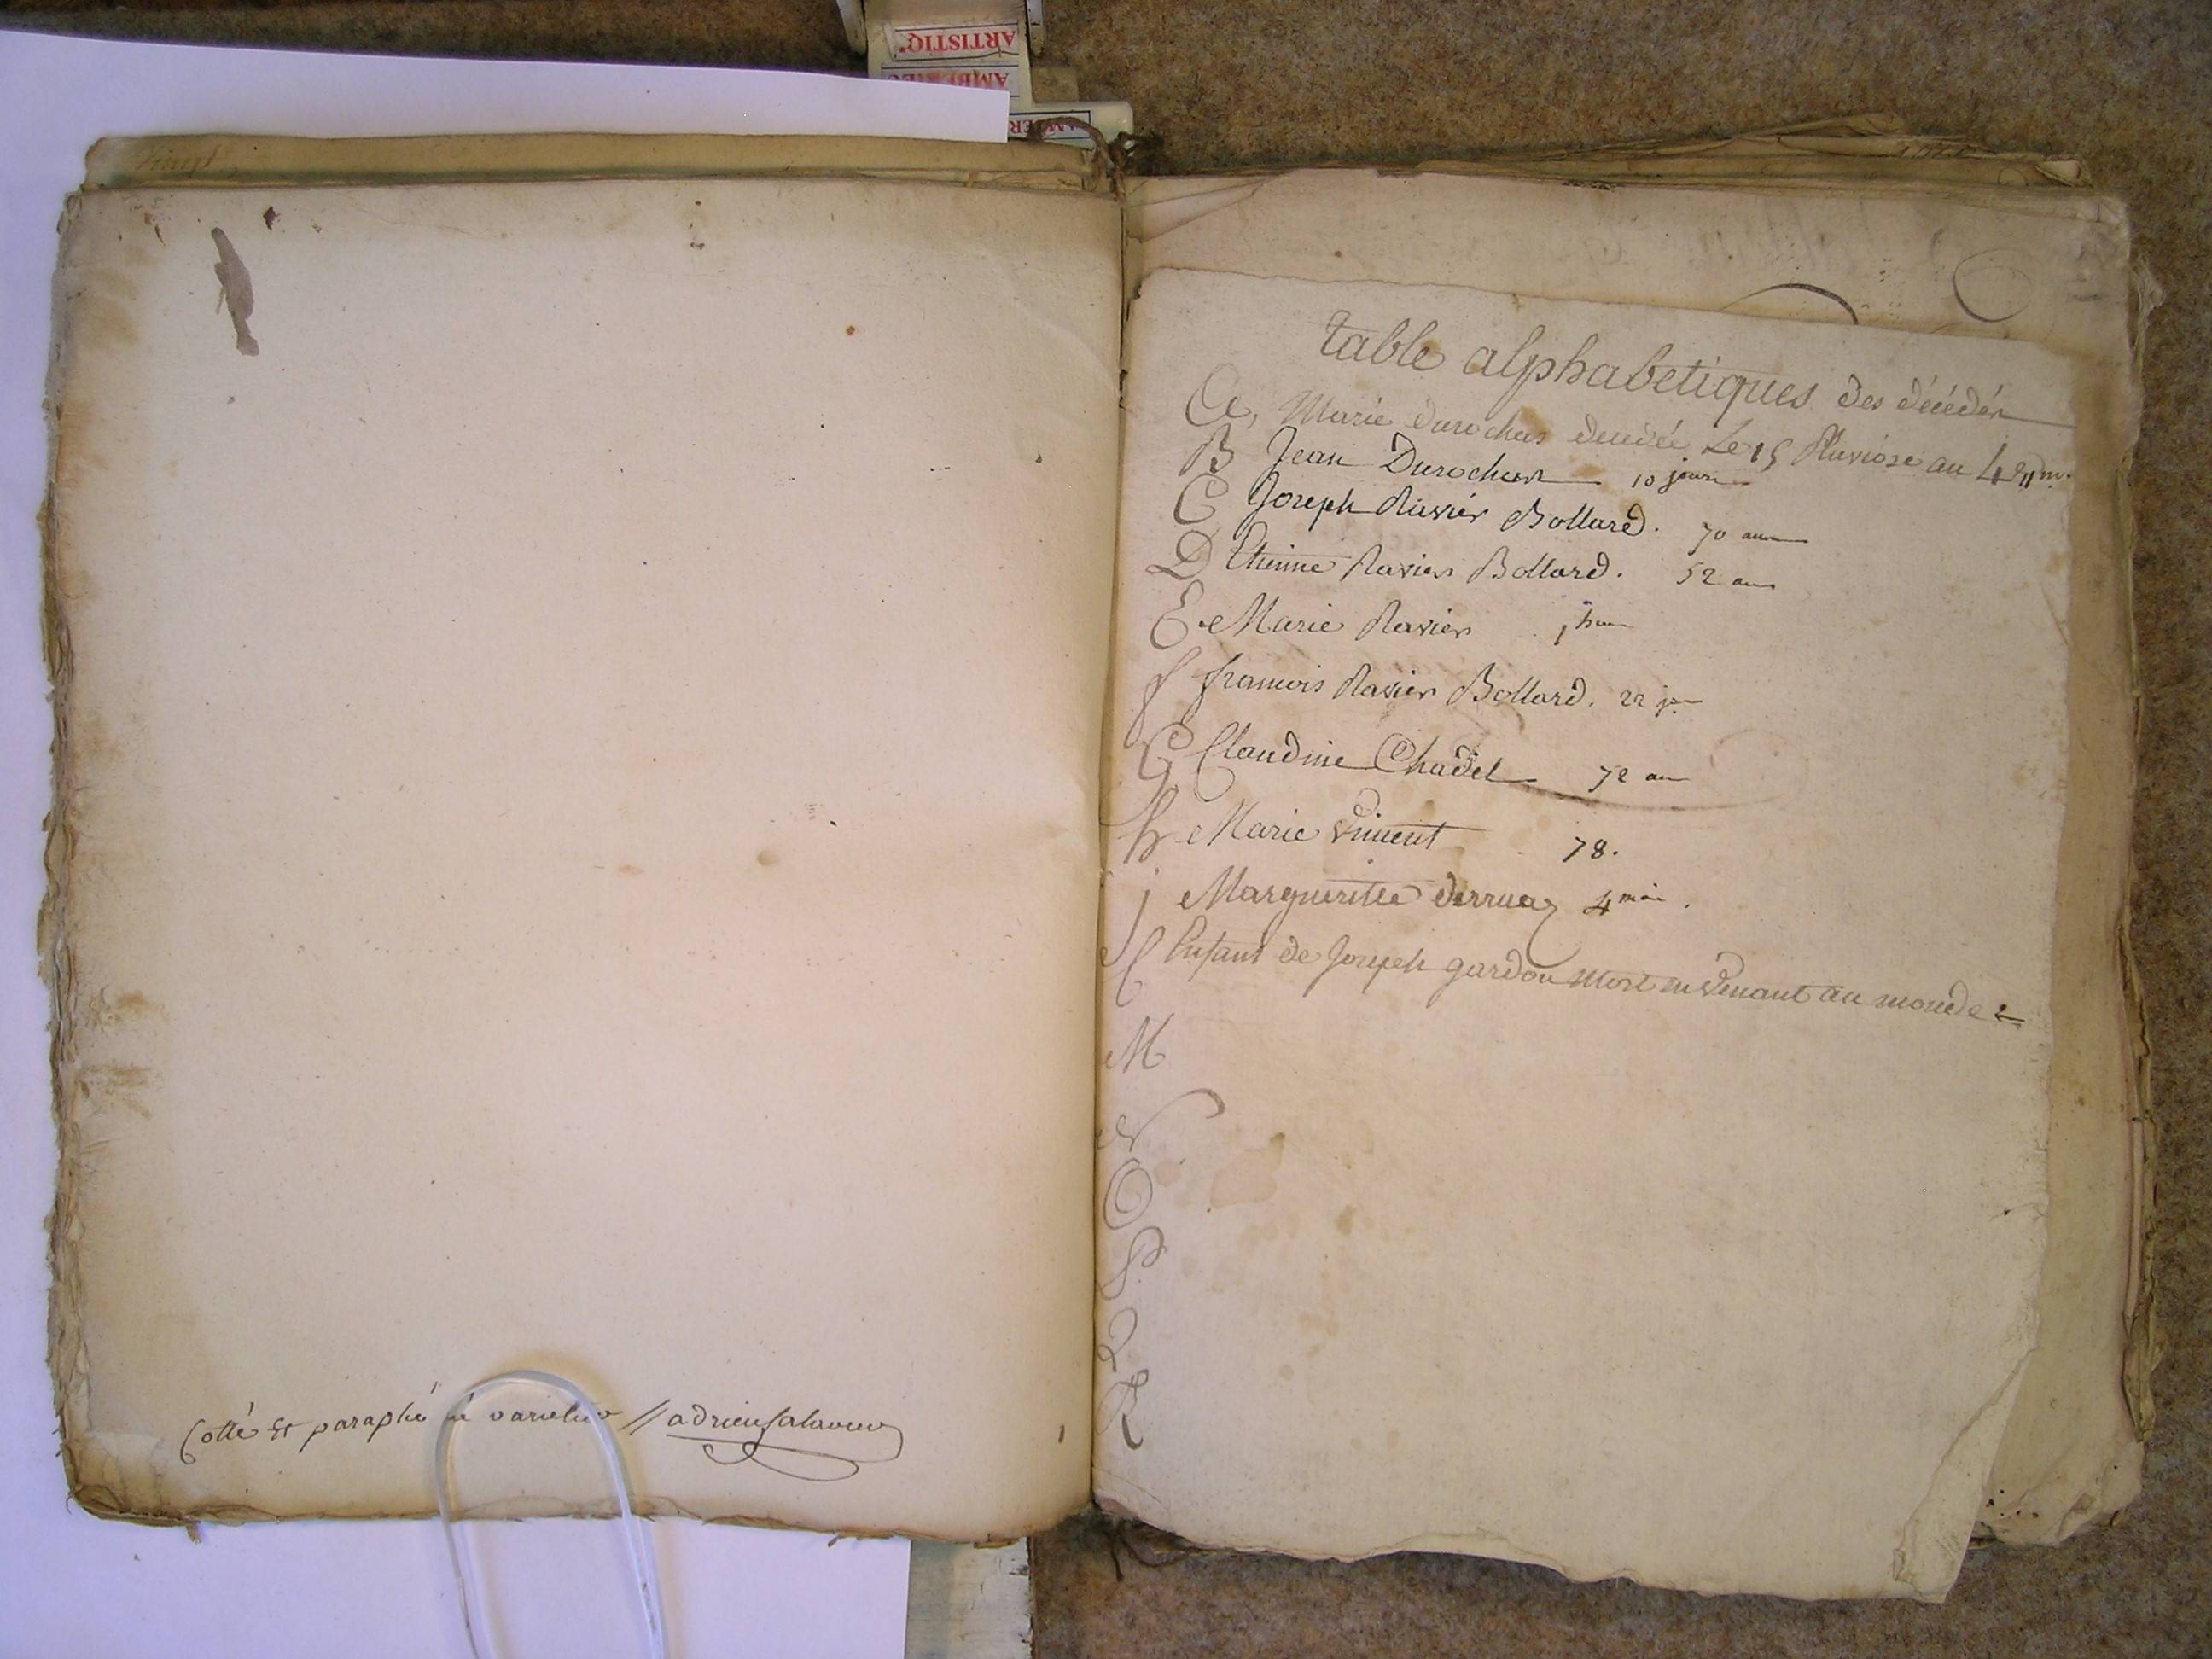 ARTISTIQ'
Cotté et paraphé né varietur // adrien
table alphabetiques des décédés
A, Marie durochas decedée Le 15 Pluviose au 4 em.
B Jean Durochas 10 jours
C Joseph Ravier Bollard. 70 ans
D Etienne Ravier Bollard. 52 ans
E Marie Ravier 1 heu
f francois Ravier Bollard. 22 jrs
G Claudine Chadel 72 an
h Marie Vincent 78.
j Margueritte derruaz 4 moi.
l Enfant de Joseph gardon Mort en Venant au monde
M
N
O
P
Q
R